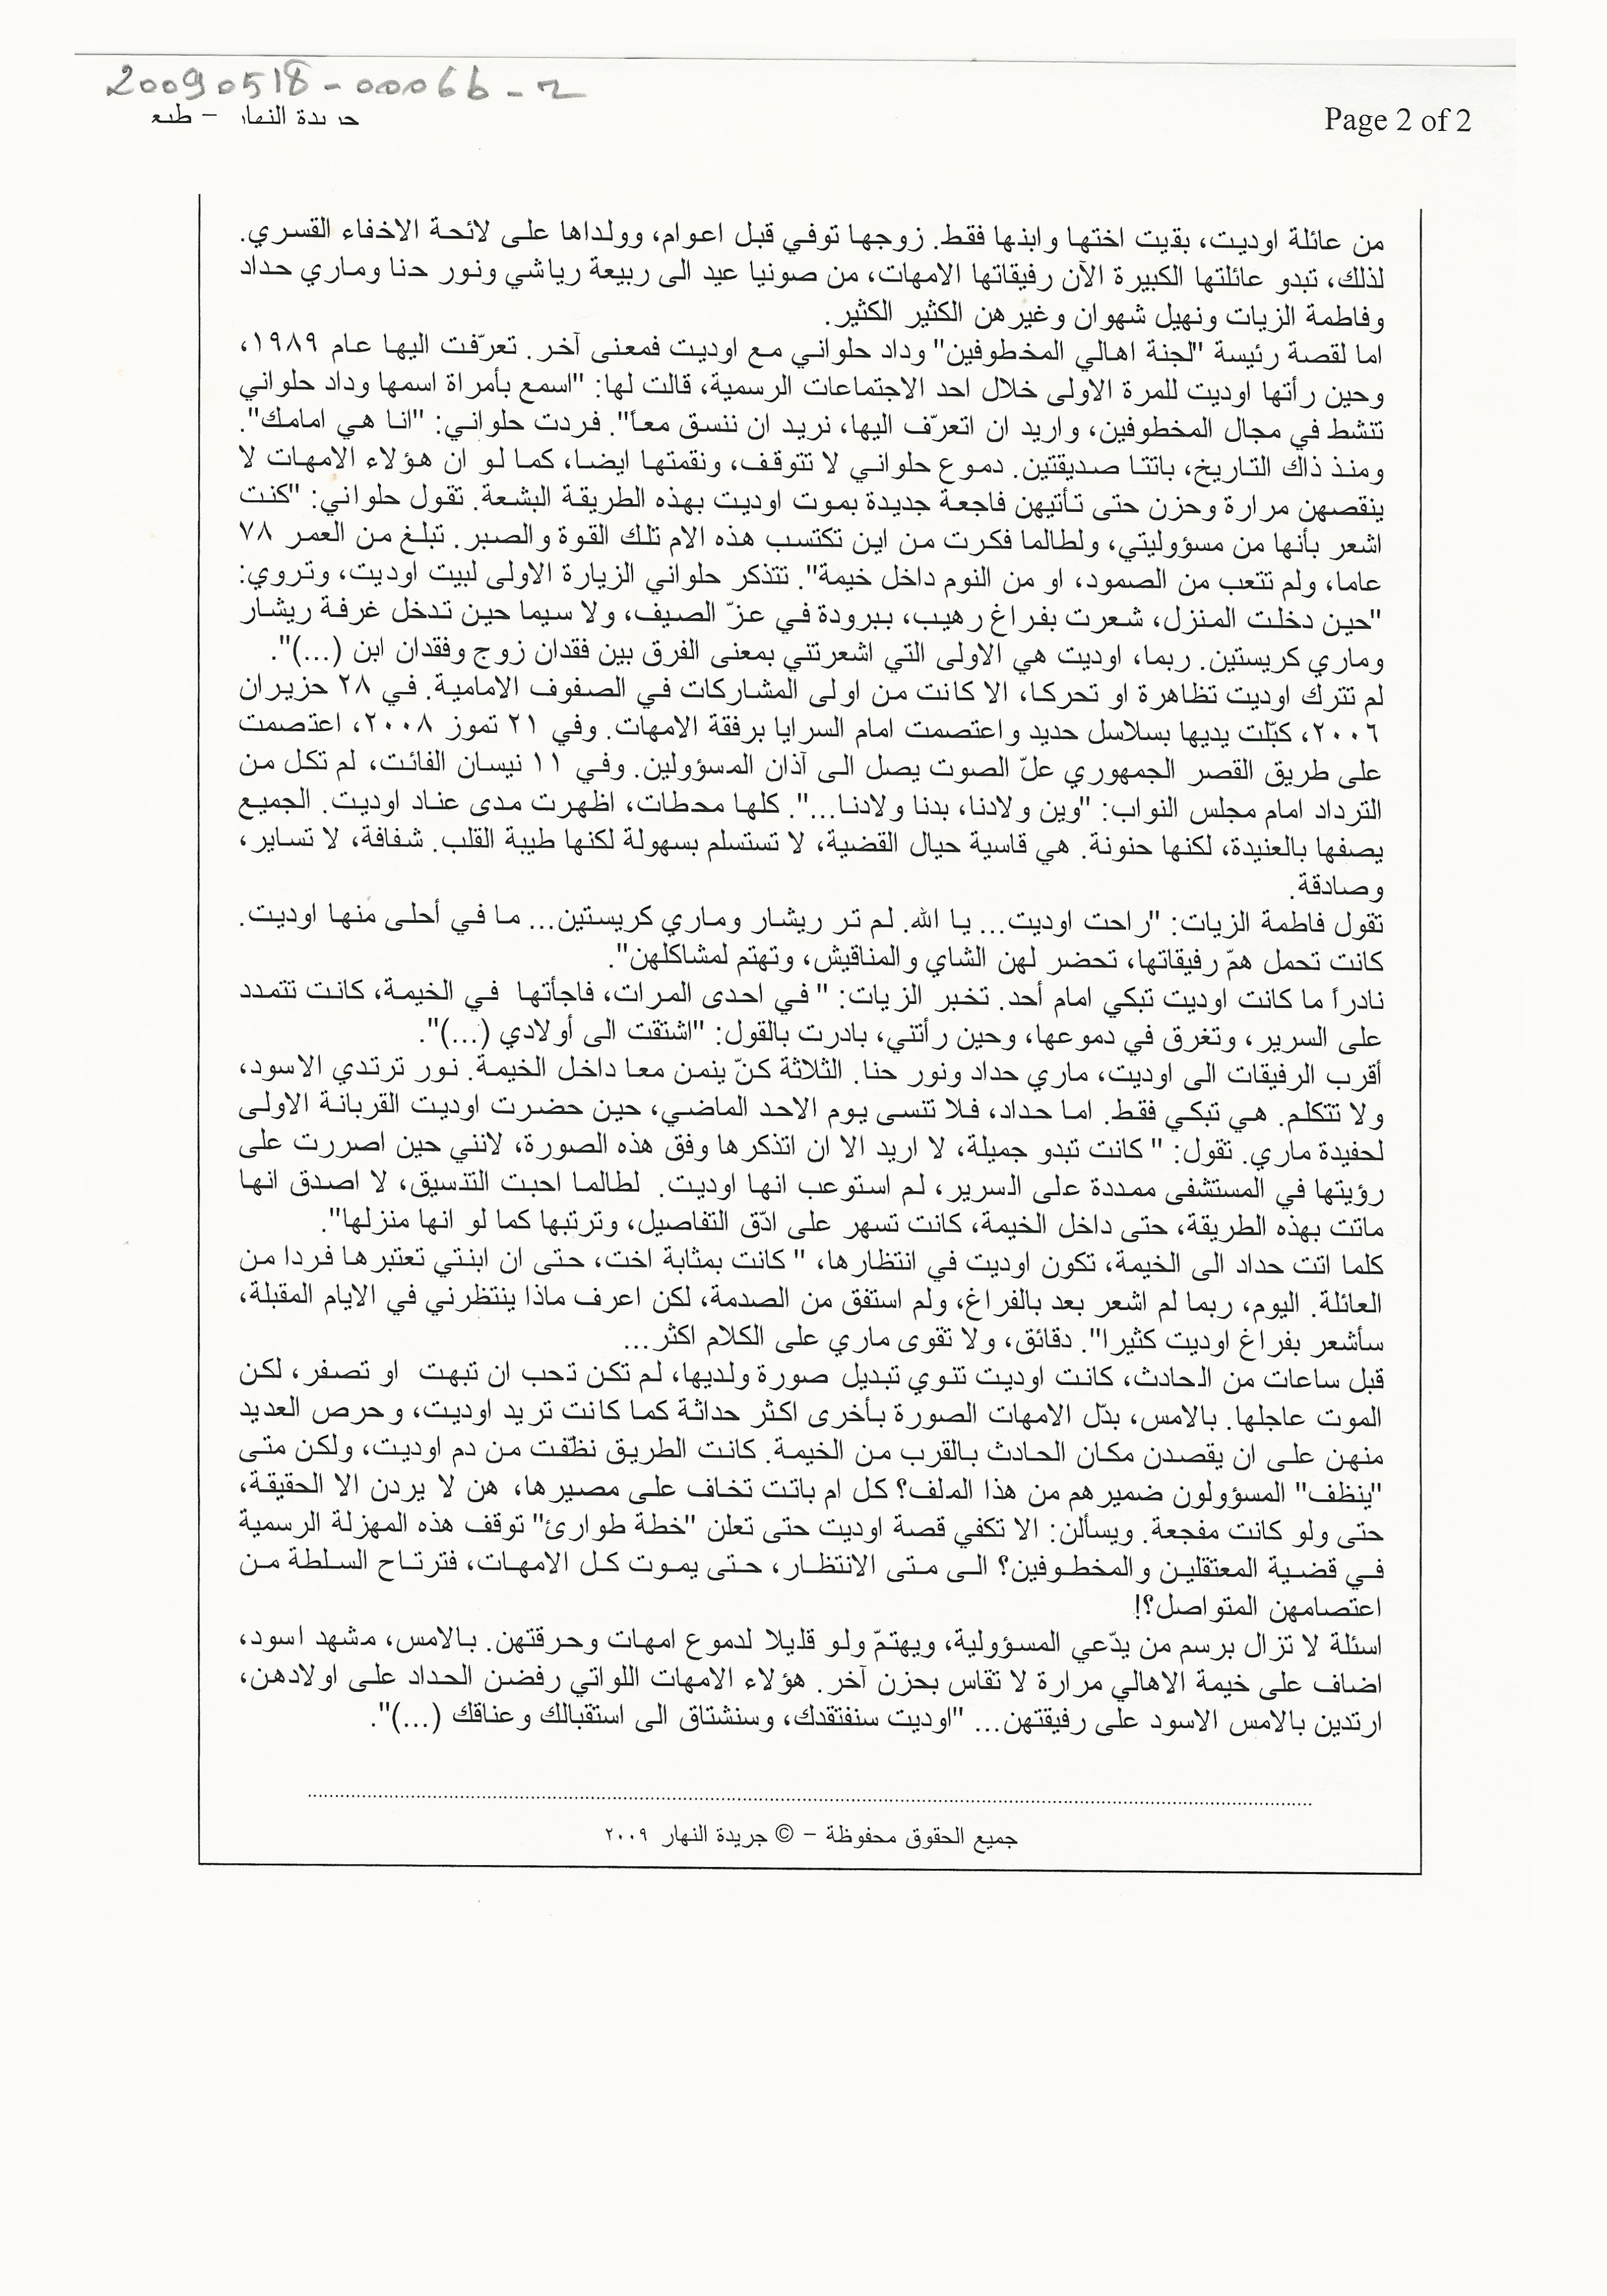 20090518-00066-2
Page 2 of 2
جريدة النهار – طبع
من عائلة اوديت، بقيت اختها وابنها فقط. زوجها توفي قبل اعوام، وولداها على لائحة الاخفاء القسري.
لذلك، تبدو عائلتها الكبيرة الآن رفيقاتها الامهات، من صونيا عيد الى ربيعة رياشي ونور حنا وماري حداد
وفاطمة الزيات ونهيل شهوان وغيرهن الكثير الكثير.
اما لقصة رئيسة "لجنة اهالي المخطوفين" وداد حلواني مع اوديت فمعنى آخر. تعرّفت اليها عام ١٩٨٩،
وحين رأتها اوديت للمرة الاولى خلال احد الاجتماعات الرسمية، قالت لها: "اسمع بأمراة اسمها وداد حلواني
تنشط في مجال المخطوفين، واريد ان اتعرّف اليها، نريد ان ننسق معاً". فردت حلواني: "انا هي امامك".
ومنذ ذاك التاريخ، باتتا صديقتين. دموع حلواني لا تتوقف، ونقمتها ايضا، كما لو ان هؤلاء الامهات لا
ينقصهن مرارة وحزن حتى تأتيهن فاجعة جديدة بموت اوديت بهذه الطريقة البشعة. تقول حلواني: "كنت
اشعر بأنها من مسؤوليتي، ولطالما فكرت من اين تكتسب هذه الام تلك القوة والصبر. تبلغ من العمر ٧٨
عاما، ولم تتعب من الصمود، او من النوم داخل خيمة". تتذكر حلواني الزيارة الاولى لبيت اوديت، وتروي:
"حين دخلت المنزل، شعرت بفراغ رهيب، ببرودة في عزّ الصيف، ولا سيما حين تدخل غرفة ريشار
وماري كريستين. ربما، اوديت هي الاولى التي اشعرتني بمعنى الفرق بين فقدان زوج وفقدان ابن (...)".
لم تترك اوديت تظاهرة او تحركا، الا كانت من اولى المشاركات في الصفوف الامامية. في ٢٨ حزيران
٢٠٠٦، كبّلت يديها بسلاسل حديد واعتصمت امام السرايا برفقة الامهات. وفي ٢١ تموز ٢٠٠٨، اعتصمت
على طريق القصر الجمهوري علّ الصوت يصل الى آذان المسؤولين. وفي ١١ نيسان الفائت، لم تكل من
الترداد امام مجلس النواب: "وين ولادنا، بدنا ولادنا...". كلها محطات، اظهرت مدى عناد اوديت. الجميع
يصفها بالعنيدة، لكنها حنونة. هي قاسية حيال القضية، لا تستسلم بسهولة لكنها طيبة القلب. شفافة، لا تساير،
وصادقة.
تقول فاطمة الزيات: "راحت اوديت... يا الله. لم تر ريشار وماري كريستين... ما في أحلى منها اوديت.
كانت تحمل همّ رفيقاتها، تحضر لهن الشاي والمناقيش، وتهتم لمشاكلهن".
نادراً ما كانت اوديت تبكي امام أحد. تخبر الزيات: " في احدى المرات، فاجأتها في الخيمة، كانت تتمدد
على السرير، وتغرق في دموعها، وحين رأتني، بادرت بالقول: "اشتقت الى أولادي (...)".
أقرب الرفيقات الى اوديت، ماري حداد ونور حنا. الثلاثة كنّ ينمن معا داخل الخيمة. نور ترتدي الاسود،
ولا تتكلم. هي تبكي فقط. اما حداد، فلا تنسى يوم الاحد الماضي، حين حضرت اوديت القربانة الاولى
لحفيدة ماري. تقول: " كانت تبدو جميلة، لا اريد الا ان اتذكرها وفق هذه الصورة، لانني حين اصررت على
رؤيتها في المستشفى ممددة على السرير، لم استوعب انها اوديت. لطالما احبت التنسيق، لا اصدق انها
ماتت بهذه الطريقة، حتى داخل الخيمة، كانت تسهر على ادّق التفاصيل، وترتبها كما لو انها منزلها".
كلما اتت حداد الى الخيمة، تكون اوديت في انتظارها، " كانت بمثابة اخت، حتى ان ابنتي تعتبرها فردا من
العائلة. اليوم، ربما لم اشعر بعد بالفراغ، ولم استفق من الصدمة، لكن اعرف ماذا ينتظرني في الايام المقبلة،
سأشعر بفراغ اوديت كثيرا". دقائق، ولا تقوى ماري على الكلام اكثر...
قبل ساعات من الحادث، كانت اوديت تنوي تبديل صورة ولديها، لم تكن تحب ان تبهت او تصفر، لكن
الموت عاجلها. بالامس، بدّل الامهات الصورة بأخرى اكثر حداثة كما كانت تريد اوديت، وحرص العديد
منهن على ان يقصدن مكان الحادث بالقرب من الخيمة. كانت الطريق نظّفت من دم اوديت، ولكن متى
"ينظف" المسؤولون ضميرهم من هذا الملف؟ كل ام باتت تخاف على مصيرها، هن لا يردن الا الحقيقة،
حتى ولو كانت مفجعة. ويسألن: الا تكفي قصة اوديت حتى تعلن "خطة طوارئ" توقف هذه المهزلة الرسمية
في قضية المعتقلين والمخطوفين؟ الى متى الانتظار، حتى يموت كل الامهات، فترتاح السلطة من
اعتصامهن المتواصل؟!
اسئلة لا تزال برسم من يدّعي المسؤولية، ويهتمّ ولو قليلا لدموع امهات وحرقتهن. بالامس، مشهد اسود،
اضاف على خيمة الاهالي مرارة لا تقاس بحزن آخر. هؤلاء الامهات اللواتي رفضن الحداد على اولادهن،
ارتدين بالامس الاسود على رفيقتهن... "اوديت سنفتقدك، وسنشتاق الى استقبالك وعناقك (...)".
جميع الحقوق محفوظة – © جريدة النهار ٢٠٠٩